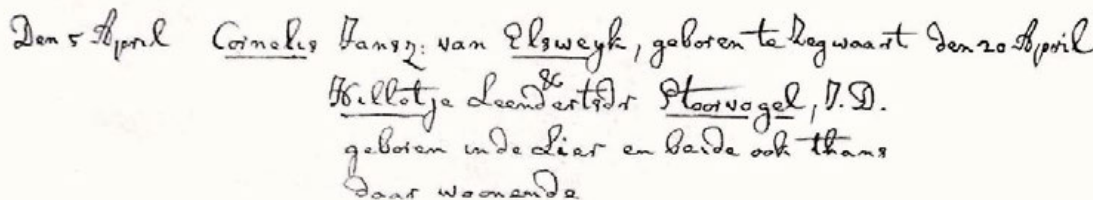 Den 5 April Cornelis Jansz: van Elsweyk, geboren te Zegwaart den 20 April
&
Willotje Leendertsdr Ploorvogel, J.D.
geboren in de Lier en beide ook thans
daar woonende